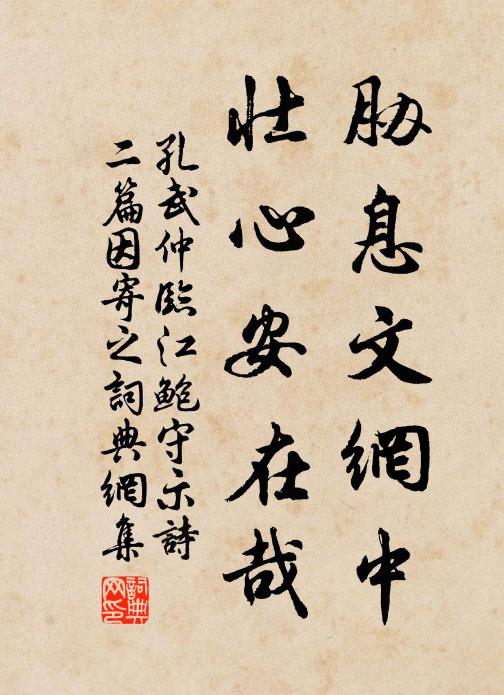 胁息文網中
壮心安在哉
孔武仲臨江鮑守示詩
二篇因寄之詞典網集
詞典網印